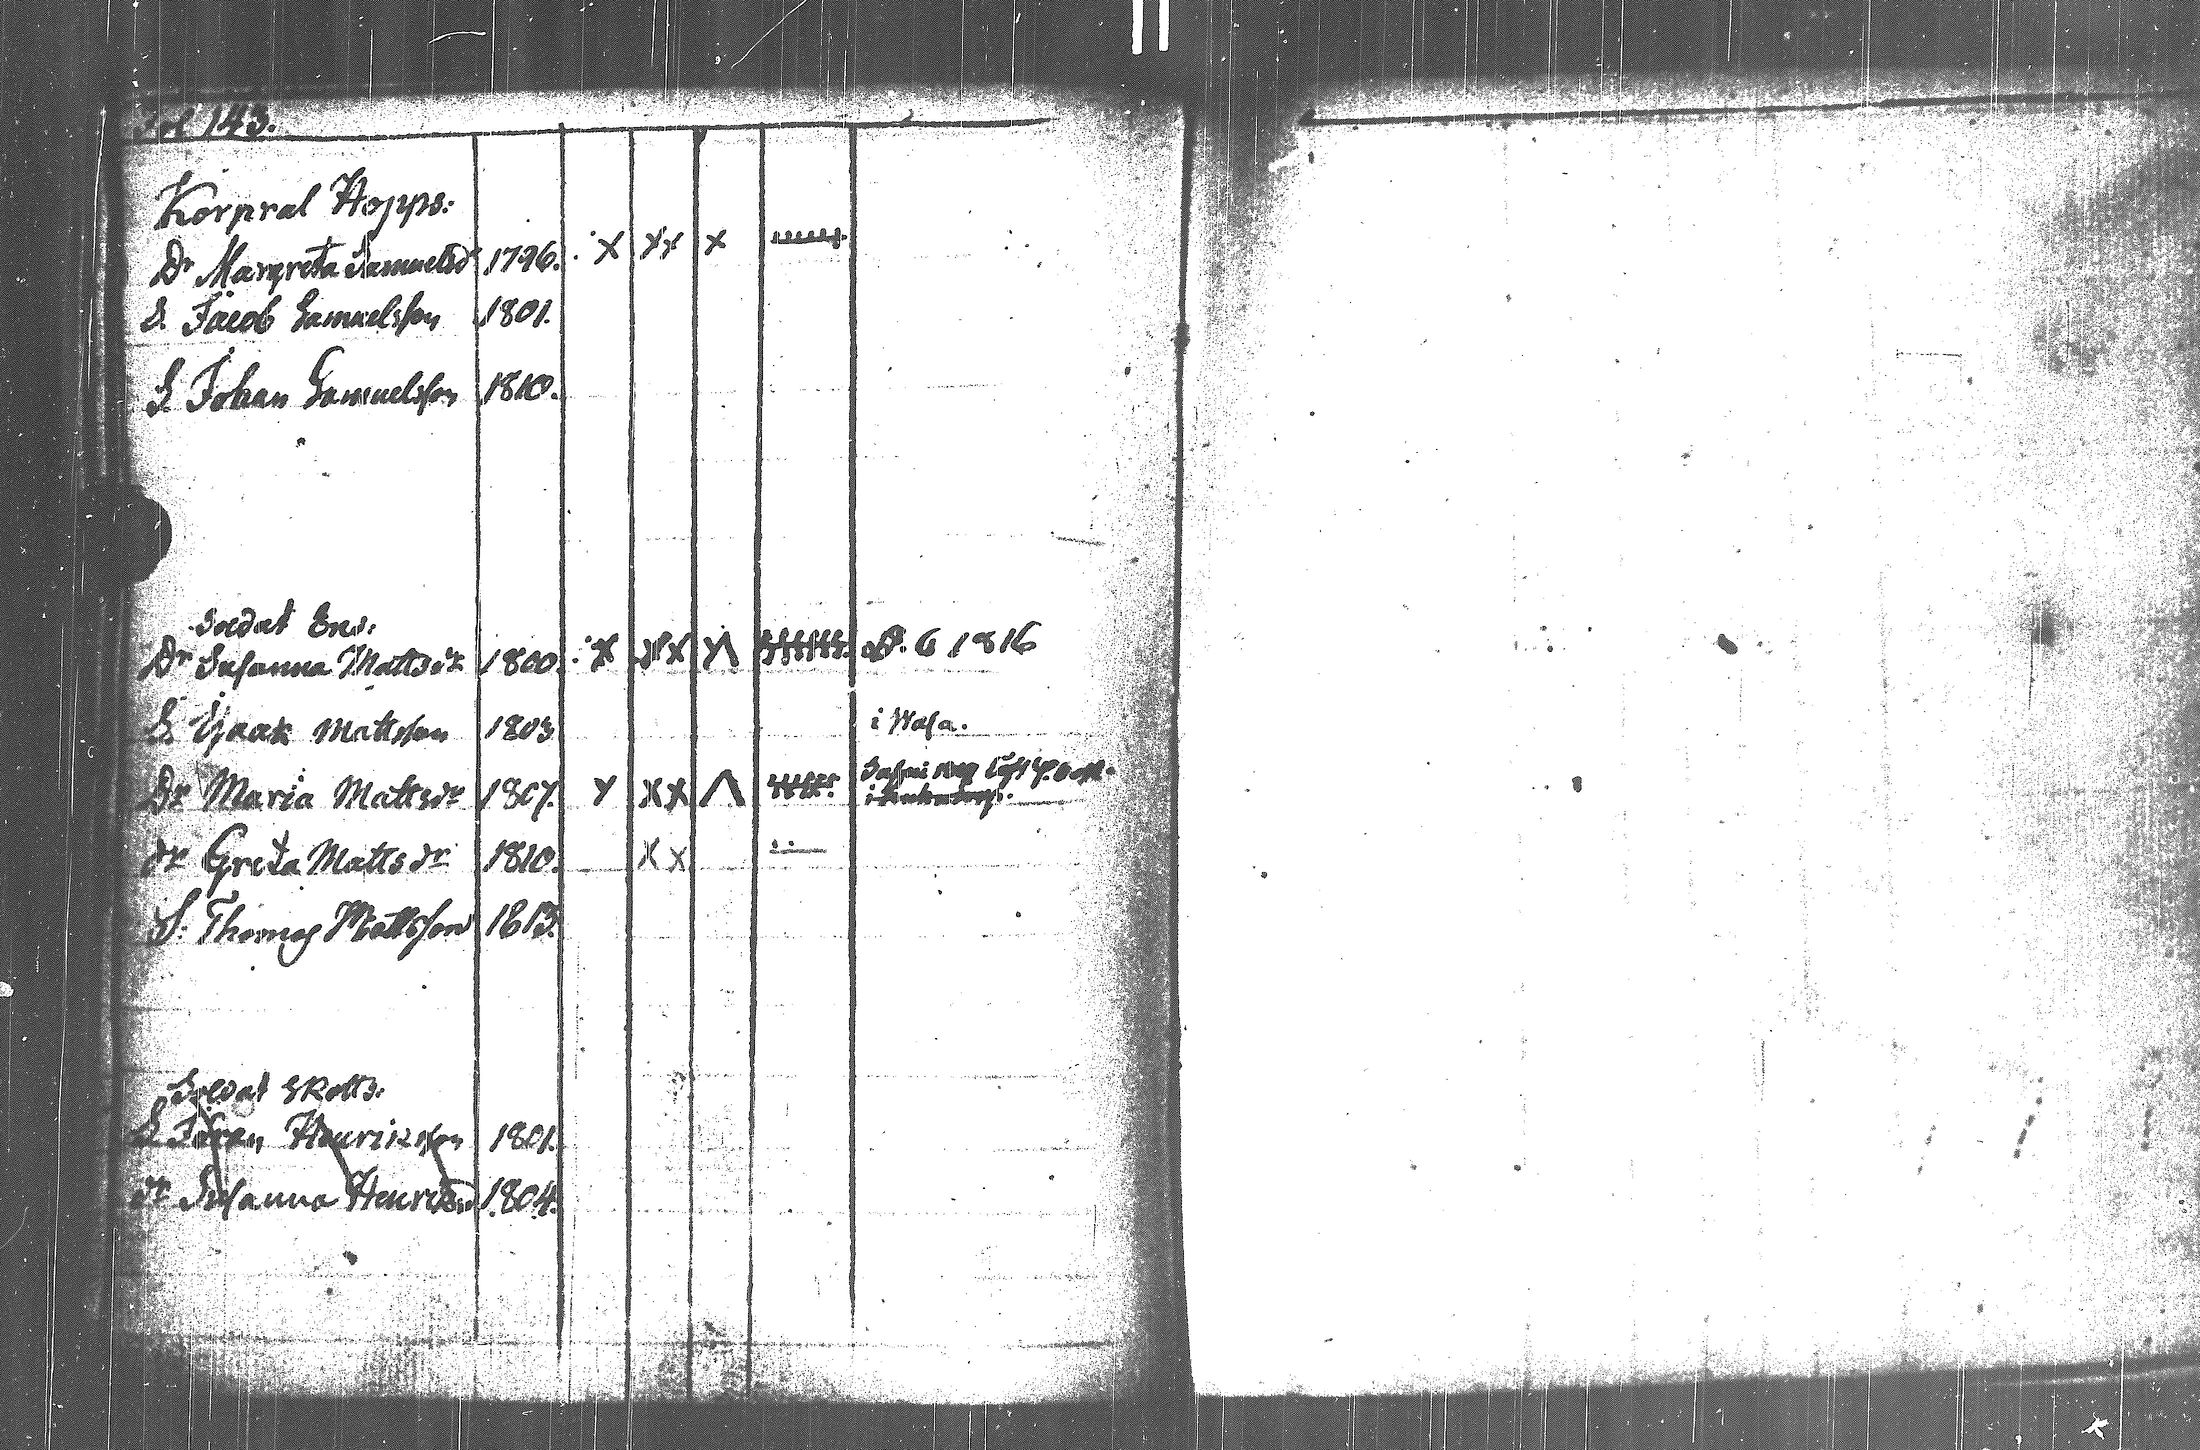 Fol 143.
Korpral Hopps:
Dr Margreta Samuelsd 1796.
S. Jacob Samuelsson 1801.
S. Johan Samuelsson 1810.
Soldat Ens:
Dr Susanna Mattsdr 1800. 6 1816
S. Isaak Mattsson 1803 i Wasa.
Dr Maria Mattsdr 1807.
dr Greta Mattsdr 1810.
S. Thomas Mattsson 1813.
Soldat Skotts:
S Johan Henriksson 1801.
dr Susanna Henriksd 1804.